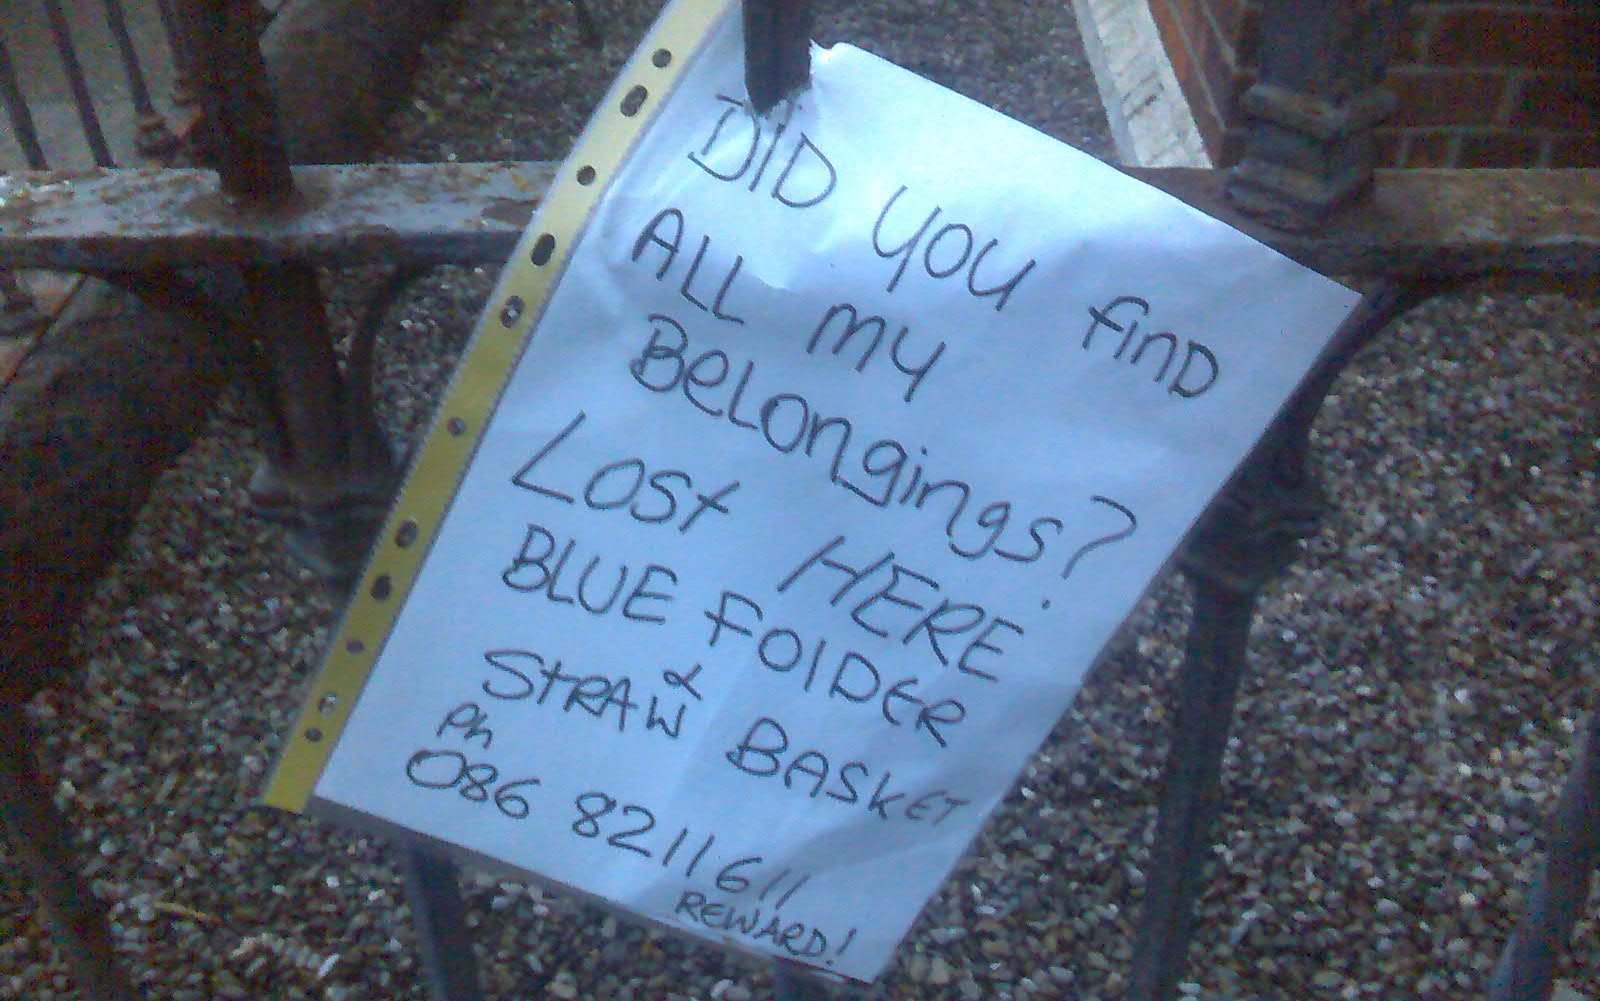 DID YOU FIND
ALL MY
BELONGINGS?
LOST HERE.
BLUE FOLDER
&
STRAW BASKET
Ph
086 8211611
REWARD!